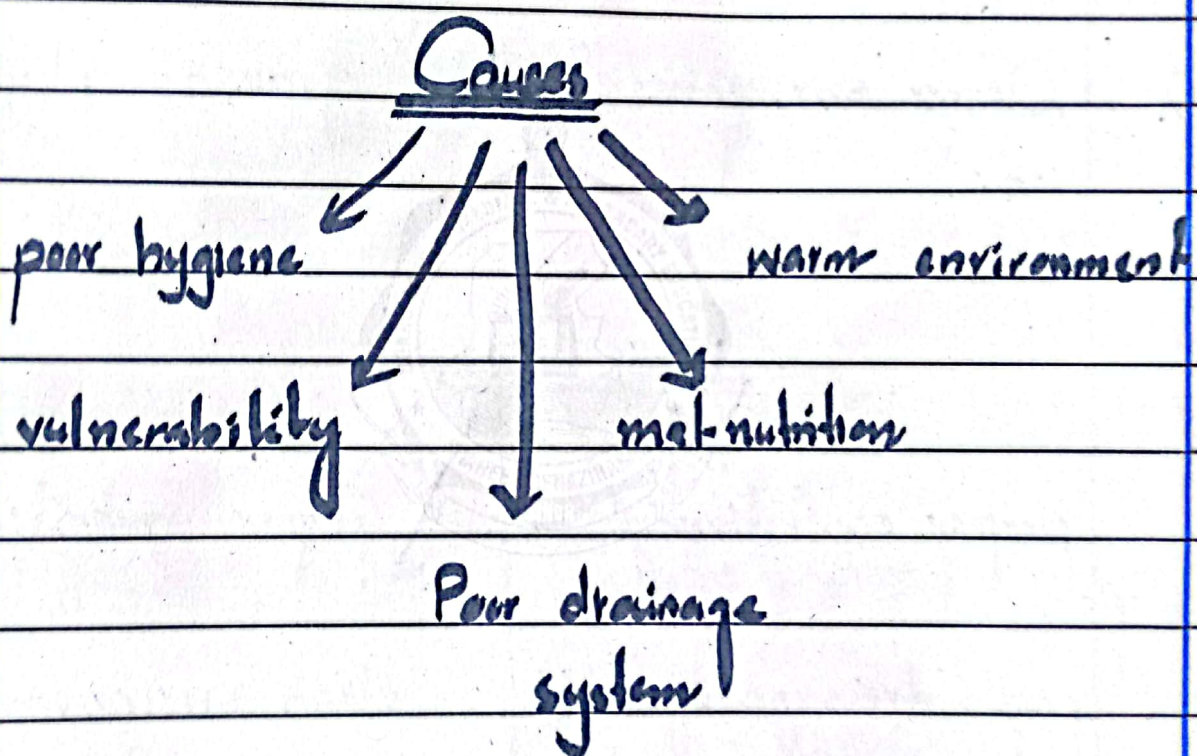 Causes
poor hygiene
warm environment
vulnerability
mal-nutrition
Poor drainage
system